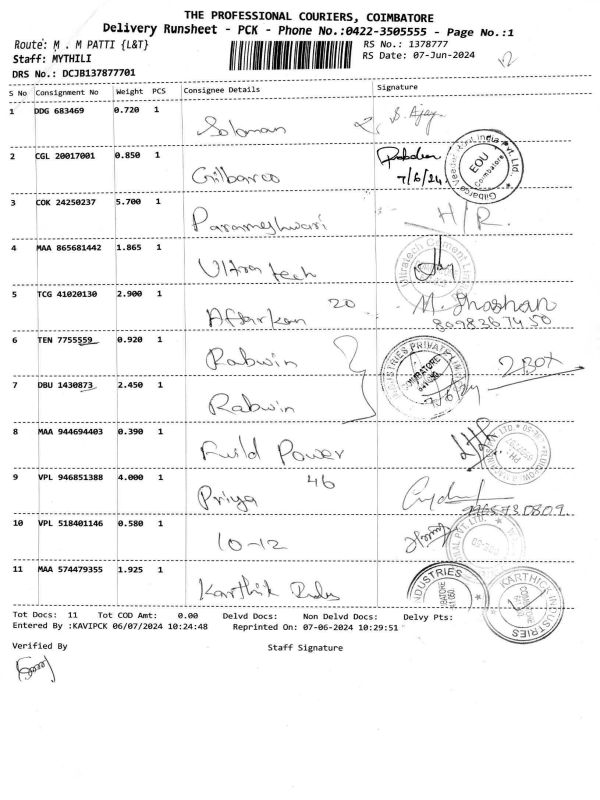 THE PROFESSIONAL COURIERS, COIMBATORE
Delivery Runsheet - PCK - Phone No.:0422-3505555 - Page No.:1
Route: M . M PATTI {L&T}
RS No.: 1378777
Staff: MYTHILI
RS Date: 07-Jun-2024
DRS No.: DCJB137877701
S No Consignment No Weight PCS Consignee Details Signature
1 DDG 683469 0.720 1
Soloman S. Ajay
2 CGL 20017001 0.850 1
Gilbarco 7/6/24
EOU
Coimbatore
3 COK 24250237 5.700 1
Parameshwari H/R.
4 MAA 865681442 1.865 1
Ultra tech
5 TCG 41020130 2.900 1
20
6 TEN 7755559 0.920 1
Rabwin 2 BOX
7 DBU 1430873 2.450 1
Rabwin 7/6/24
8 MAA 944694403 0.390 1
Power
9 VPL 946851388 4.000 1
Priya 46
10 VPL 518401146 0.580 1
10-12
11 MAA 574479355 1.925 1
Karthik
KARTHICK INDUSTRIES
Tot Docs: 11 Tot COD Amt: 0.00 Delvd Docs: Non Delvd Docs: Delvy Pts:
Entered By :KAVIPCK 06/07/2024 10:24:48 Reprinted On: 07-06-2024 10:29:51
Verified By Staff Signature